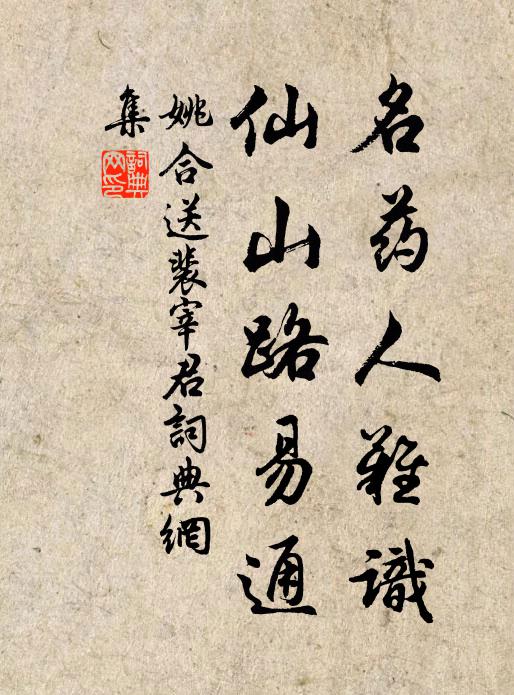 名药人难識
仙山路易通
姚合送裴宰君詞典網
集
詞典
网印